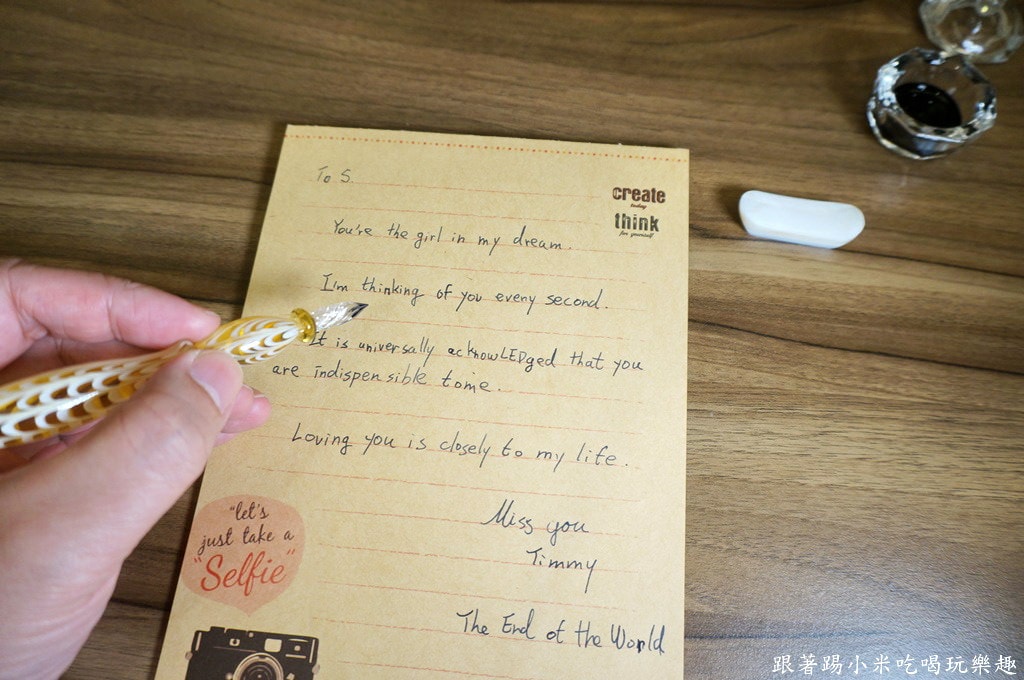 To S.
create
today
think
for yourself
You're the girl in my dream.
I'm thinking of you eveny second.
It is universally acknowLEDged that you
are indispensible tome.
Loving you is closely to my life.
Miss you
Timmy
The End of the World
"let's
just take a
"Selfie"
跟著踢小米吃喝玩樂趣